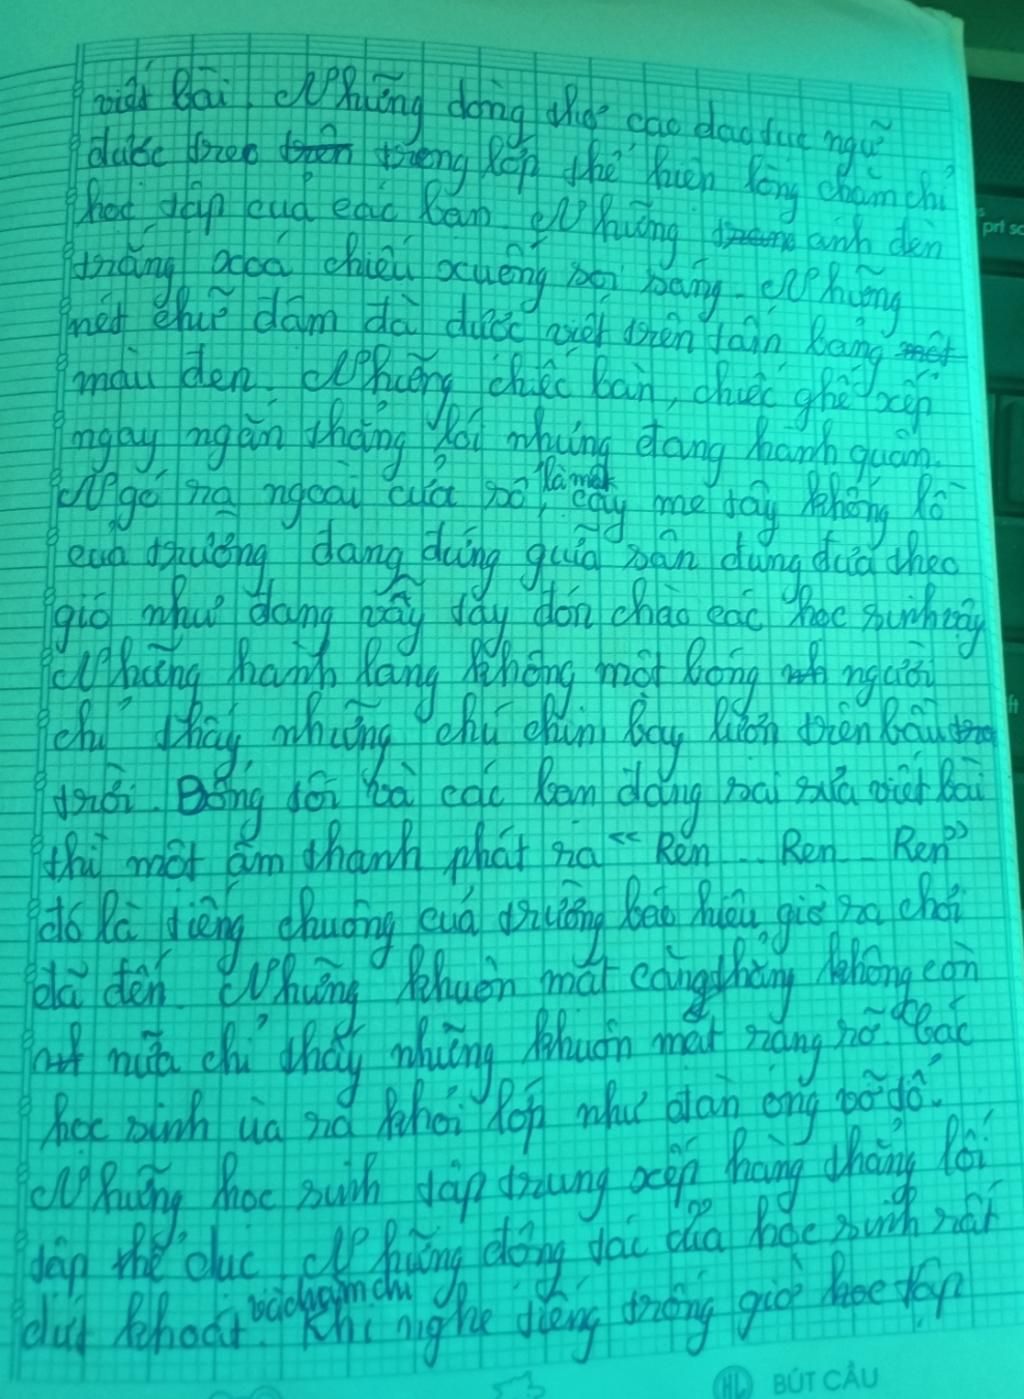 viết bài. Những dòng thơ cao dao tục ngữ
được treo trên trong lớp thể hiện lòng chăm chỉ
học tập của các bạn Những ánh đèn
trắng xoá chiếu xuống sợi sáng. Những
nét chữ đậm đà được viết trên tấm bảng một
màu đen. Những chiếc bàn, chiếc ghế xếp
ngay ngắn thẳng lối những đang hành quân.
Ngó ra ngoài cửa sổ, là một cây me tây khổng lồ
của trường đang đứng giữa sân đung đưa theo
gió như đang vẫy tay đón chào các học sinh vậy
Những hành lang không một bóng người
chỉ thấy những chú chim bay lượn trên bầu
trời. Bỗng tôi và các bạn đang sai sưa viết bài
thì một âm thanh phát ra "Ren .. Ren .. Ren"
đó là tiếng chuông của trường báo hiệu giờ ra chơi
đã đến. Những khuôn mặt căng thẳng không còn
nữa chỉ thấy những khuôn mặt rạng rỡ. Các
học sinh ùa ra khỏi lớp như đàn ong vỡ tổ.
Những học sinh tập trung xếp hàng thẳng lối
tập thể dục. Những động tác của học sinh rất
dứt khoát và chăm chú. Khi nghe tiếng trống giờ học tập
HL BÚT CẦU
prt sc